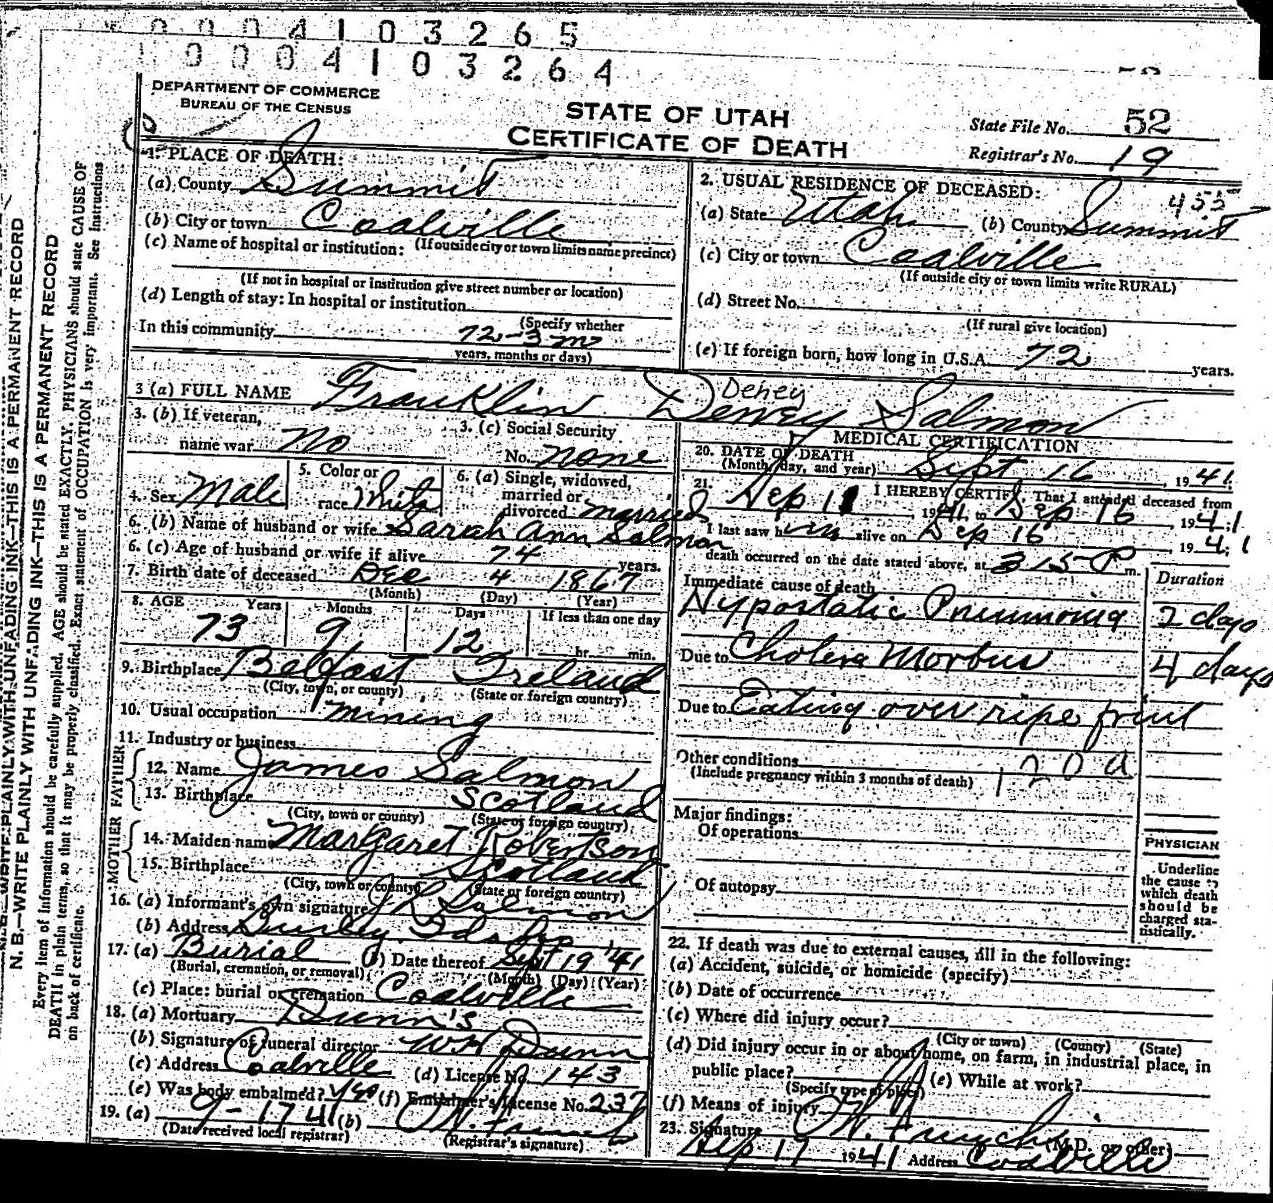 0004103265
0004103264
DEPARTMENT OF COMMERCE
BUREAU OF THE CENSUS
STATE OF UTAH
CERTIFICATE OF DEATH
State File No. 52
Registrar's No. 19
1. PLACE OF DEATH:
(a) County Summit
(b) City or town Coalville
(If outside city or town limits name precinct)
(c) Name of hospital or institution:
(If not in hospital or institution give street number or location)
(d) Length of stay: In hospital or institution
(Specify whether
In this community 72-3 m
years, months or days)
2. USUAL RESIDENCE OF DECEASED:
455
(a) State Utah (b) County Summit
(c) City or town Coalville
(If outside city or town limits write RURAL)
(d) Street No.
(If rural give location)
(e) If foreign born, how long in U.S.A. 72 years.
Dehey
3 (a) FULL NAME Franklin Dewey Salmon
3. (b) If veteran,
name war No
3. (c) Social Security
No. none
4. Sex Male
5. Color or
race White
6. (a) Single, widowed,
married or
divorced married
6. (b) Name of husband or wife Sarah Ann Salmon
6. (c) Age of husband or wife if alive 74 years.
7. Birth date of deceased Dec 4 1867
(Month) (Day) (Year)
8. AGE Years Months Days If less than one day
73 9 12 hr. min.
9. Birthplace Belfast Ireland
(City, town, or county) (State or foreign country)
10. Usual occupation mining
11. Industry or business
FATHER
12. Name James Salmon
13. Birthplace Scotland
(City, town or county) (State or foreign country)
MOTHER
14. Maiden name Margaret Robertson
15. Birthplace Scotland
(City, town or county) (State or foreign country)
16. (a) Informant's own signature Salmon
(b) Address Idaho
17. (a) Burial (b) Date thereof Sept 19 '41
(Burial, cremation, or removal) (Month) (Day) (Year)
(c) Place: burial or cremation Coalville
18. (a) Mortuary Dunn's
(b) Signature of funeral director W H Dunn
(c) Address Coalville (d) License No. 143
(e) Was body embalmed? Yes (f) Embalmer's License No. 237
19. (a) 9-17 41 (b)
(Date received local registrar) (Registrar's signature)
MEDICAL CERTIFICATION
20. DATE OF DEATH
(Month, day, and year) Sept 16, 1941
21. I HEREBY CERTIFY, That I attended deceased from
Sep 11 1941 to Sep 16, 1941
I last saw him alive on Sep 16 1941
death occurred on the date stated above, at 315 P m.
Immediate cause of death Duration
Hypostatic Pneumonia 2 days
Due to Cholera Morbus 4 days
Due to Eating over ripe fruit
Other conditions 120a
(Include pregnancy within 3 months of death)
Major findings:
Of operations
Of autopsy
PHYSICIAN
Underline
the cause to
which death
should be
charged sta-
tistically.
22. If death was due to external causes, fill in the following:
(a) Accident, suicide, or homicide (specify)
(b) Date of occurrence
(c) Where did injury occur?
(City or town) (County) (State)
(d) Did injury occur in or about home, on farm, in industrial place, in
public place? (e) While at work?
(Specify type of place)
(f) Means of injury
23. Signature
(M.D. or other)
Sep 17 1941 Address Coalville
N. B.—WRITE PLAINLY WITH UNFADING INK—THIS IS A PERMANENT RECORD
Every item of information should be carefully supplied. AGE should be stated EXACTLY. PHYSICIANS should state CAUSE OF
DEATH in plain terms, so that it may be properly classified. Exact statement of OCCUPATION is very important. See instructions
on back of certificate.